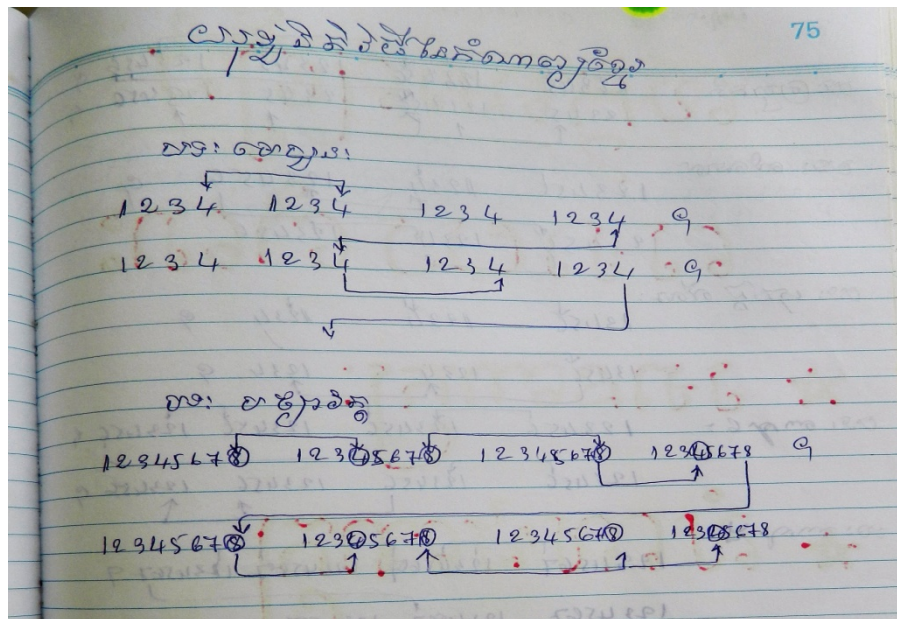 75
យុទ្ធនីតិវិធីនៃកំណាព្យខ្មែរ
បទ៖
1234 1234 1234 1234 ។
1234 1234 1234 1234 ។
បទ៖
12345678 12345678 12345678 12345678 ។
12345678 12345678 12345678 12345678